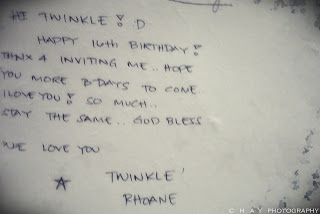 HI TWINKLE! :D
HAPPY 16th BIRTHDAY!
THNX 4 INVITING ME.. HOPE
YOU MORE B-DAYS TO COME..
I LOVE YOU! SO MUCH..
STAY THE SAME.. GOD BLESS
WE LOVE YOU
TWINKLE'
RHOANE
C H A Y PHOTOGRAPHY